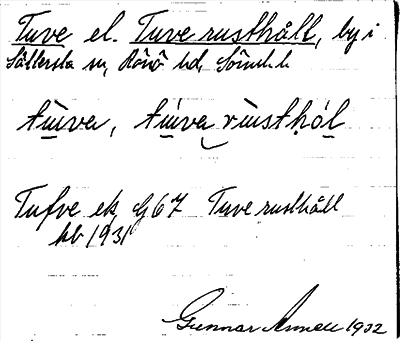 Tuve el. Tuve rusthåll, by i
Sättersta sn, Rönö hd, Söml. l.
tùva, túva rùsthól
Tufve ek G67 Tuve rusthåll
kb 1931
Gunnar Anneu 1932